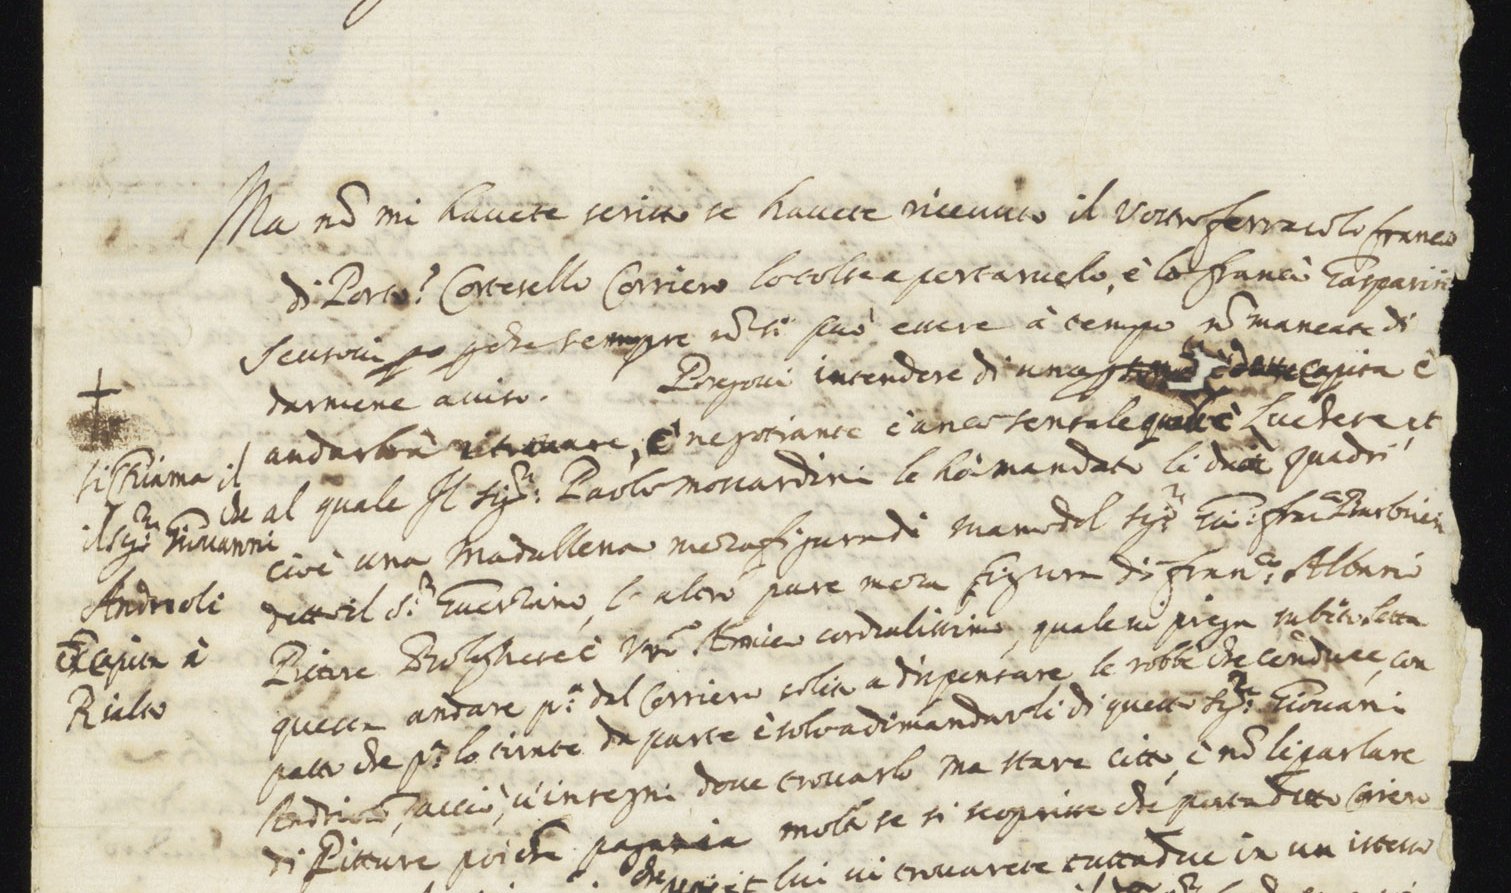 Ma nõ mi havete scritto se havete riceuuto il Vostro ferraiolo franco
di Porto? Cortesello Corriero lo tolse a portaruelo, è lo francò Gasparini
sempre nõ si può essere à tempo nõ mancate di
darmene auiso. Pregoui intendere di una capita è
andarlo à ritrouare, è negotiante è anco sensale qual è Luchese et
al quale Il Sig.r Paolo moscardini le hà mandato li due quadri
cioè una Madallena meza figura di mano del Sig.r Gio: fra.co Barbieri
detto il S.r Guerzino, l'altro pure meza figura di Fran.co Albani
Pitore Bolognese è vro Amico cordialissimo, quale ui prega subito letta
questa andare p.a dal Corriero solito a dispensare le robbe che conduce, con
patto che p.a lo tirate da parte è solo a dimandarli di questo Sig.r Giouani
Andrioli, acciò u'insegni doue trouarlo ma stare citto, è nõ li parlare
di Pitture poiche pagaria molto se si scoprisse che porta detto Coriero
lui ui trouarete tutta due in un istesso
si chiama il
che
il Sig.r Giouanni
Andrioli
è capita à
Rialto